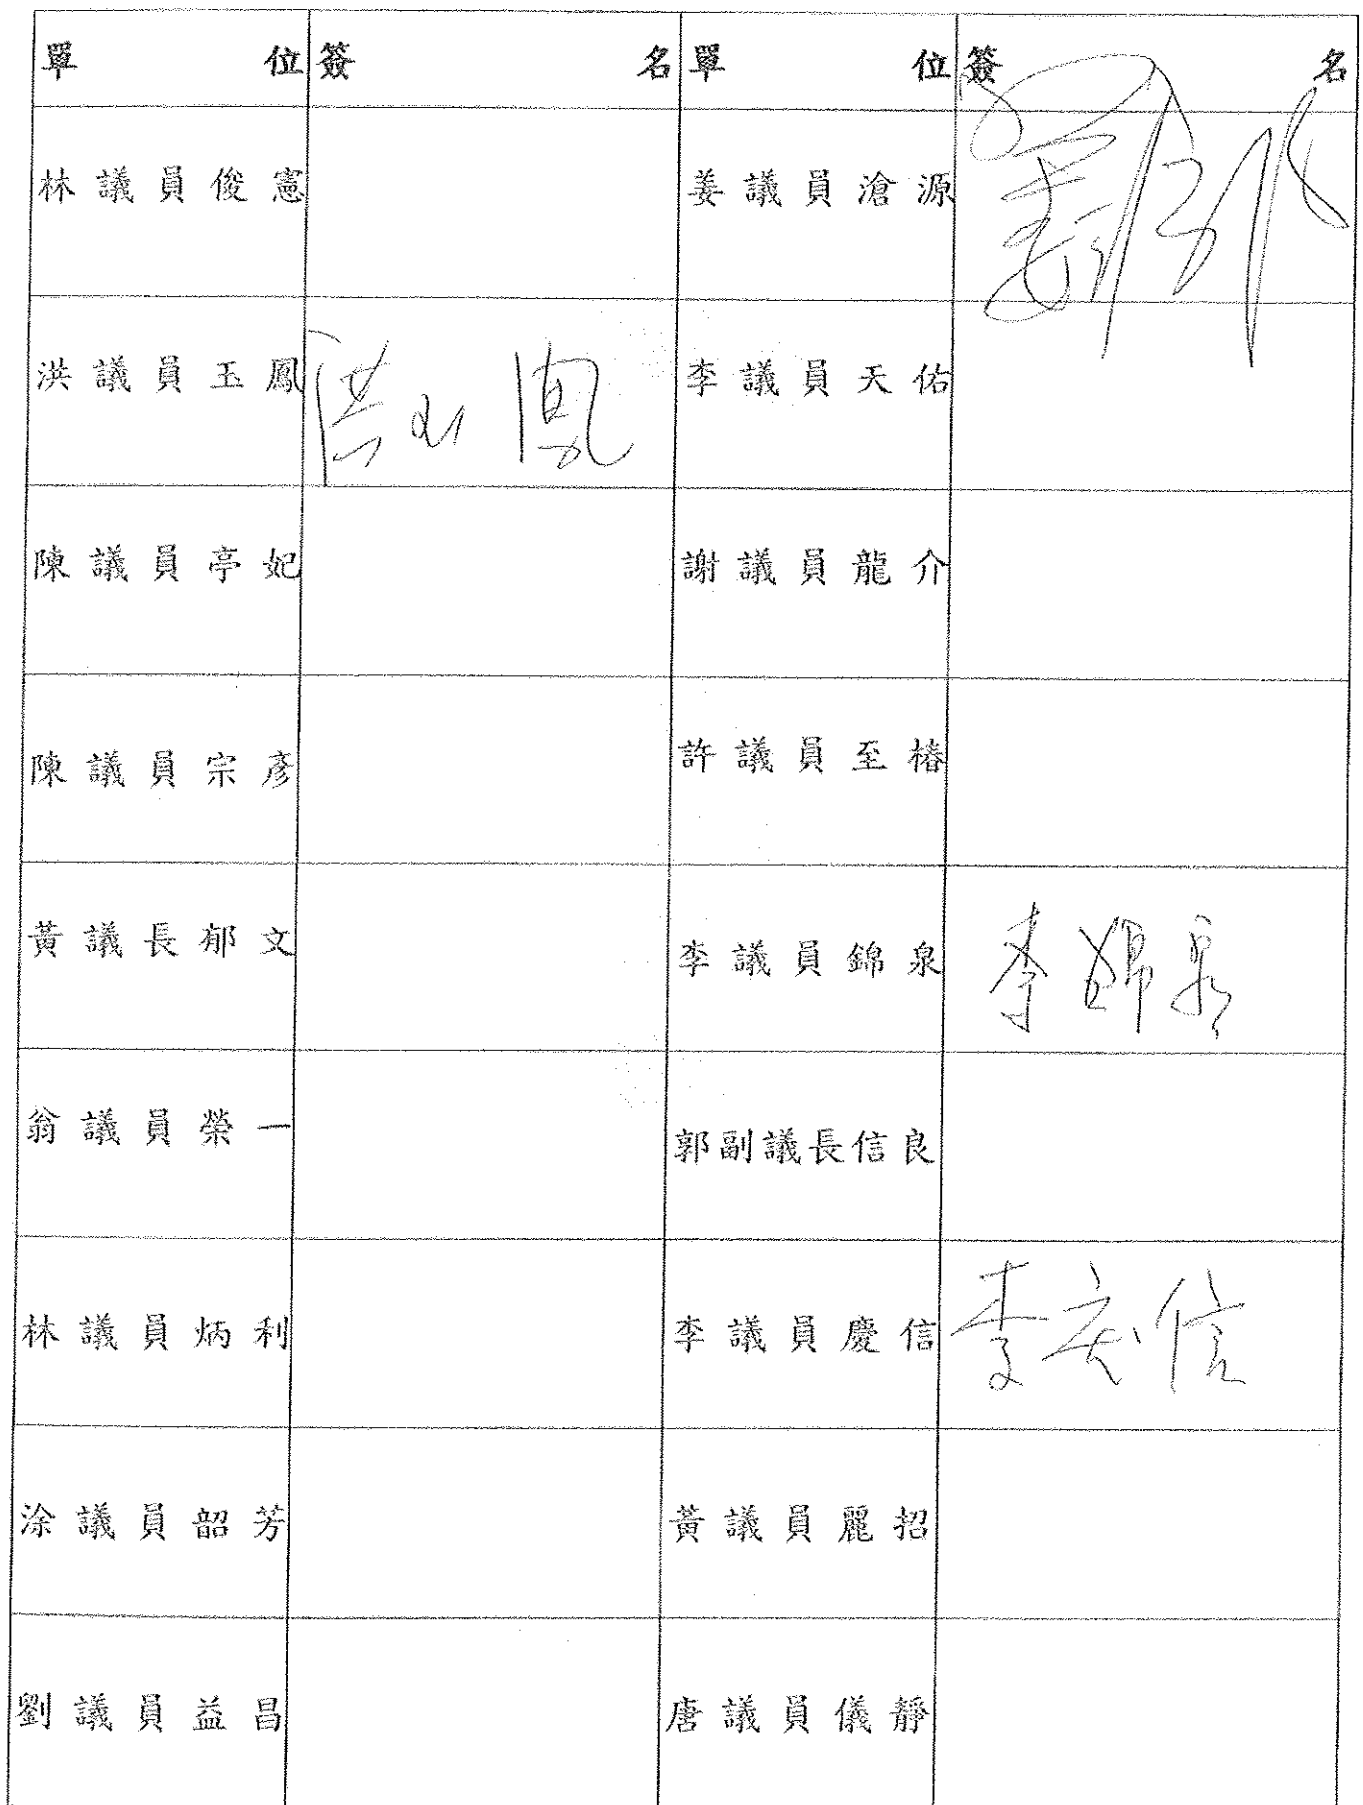 單位 簽名 單位 簽名
林議員俊憲 姜議員滄源
洪議員玉鳳 洪玉鳳 李議員天佑
陳議員亭妃 謝議員龍介
陳議員宗彥 許議員至椿
黃議長郁文 李議員錦泉 李錦泉
翁議員榮一 郭副議長信良
林議員炳利 李議員慶信 李慶信
涂議員韶芳 黃議員麗招
劉議員益昌 唐議員儀靜